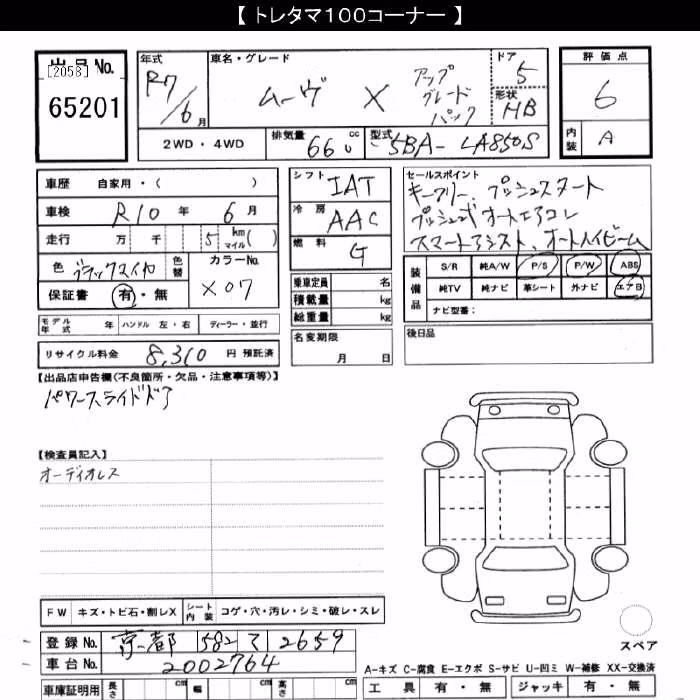 【 トレタマ100コーナー 】
出品 No.
[2058]
65201
年式
R7/6月
車名・グレード
ムーヴ X アップグレードパック
ドア
5
形状
HB
評価点
6
内装
A
2WD ・ 4WD
排気量 660 cc
型式 5BA-LA850S
車歴 自家用・( )
車検 R10 年 6 月
走行 万 千 5 km マイル ( )
色 ブラックマイカ 色替
カラーNo. X07
保証書 有・無
モデル年式 年 ハンドル 左・右 ディーラー・並行
リサイクル料金 8,310 円 預託済
シフト IAT
冷房 AAC
燃料 G
乗車定員 名
積載量 kg
総重量 kg
名変期限
月 日
セールスポイント
キーフリー、プッシュスタート
プッシュ式オートエアコン
スマートアシスト、オートハイビーム
装備品
S/R 純A/W P/S P/W ABS
純TV 純ナビ 革シート 外ナビ エアB
ナビ型番:
後日品
【出品店申告欄(不良箇所・欠品・注意事項等)】
パワースライドドア
【検査員記入】
オーディオレス
FW キズ・トビ石・割レX シート内装 コゲ・穴・汚レ・シミ・破レ・スレ
登録 No. 京都 582 マ 2659
車台 No. 2002764
車庫証明用 長さ cm 幅 cm 高さ cm
スペア
A-キズ C-腐食 E-エクボ S-サビ U-凹ミ W-補修 XX-交換済
工具 有・無 ジャッキ 有・無